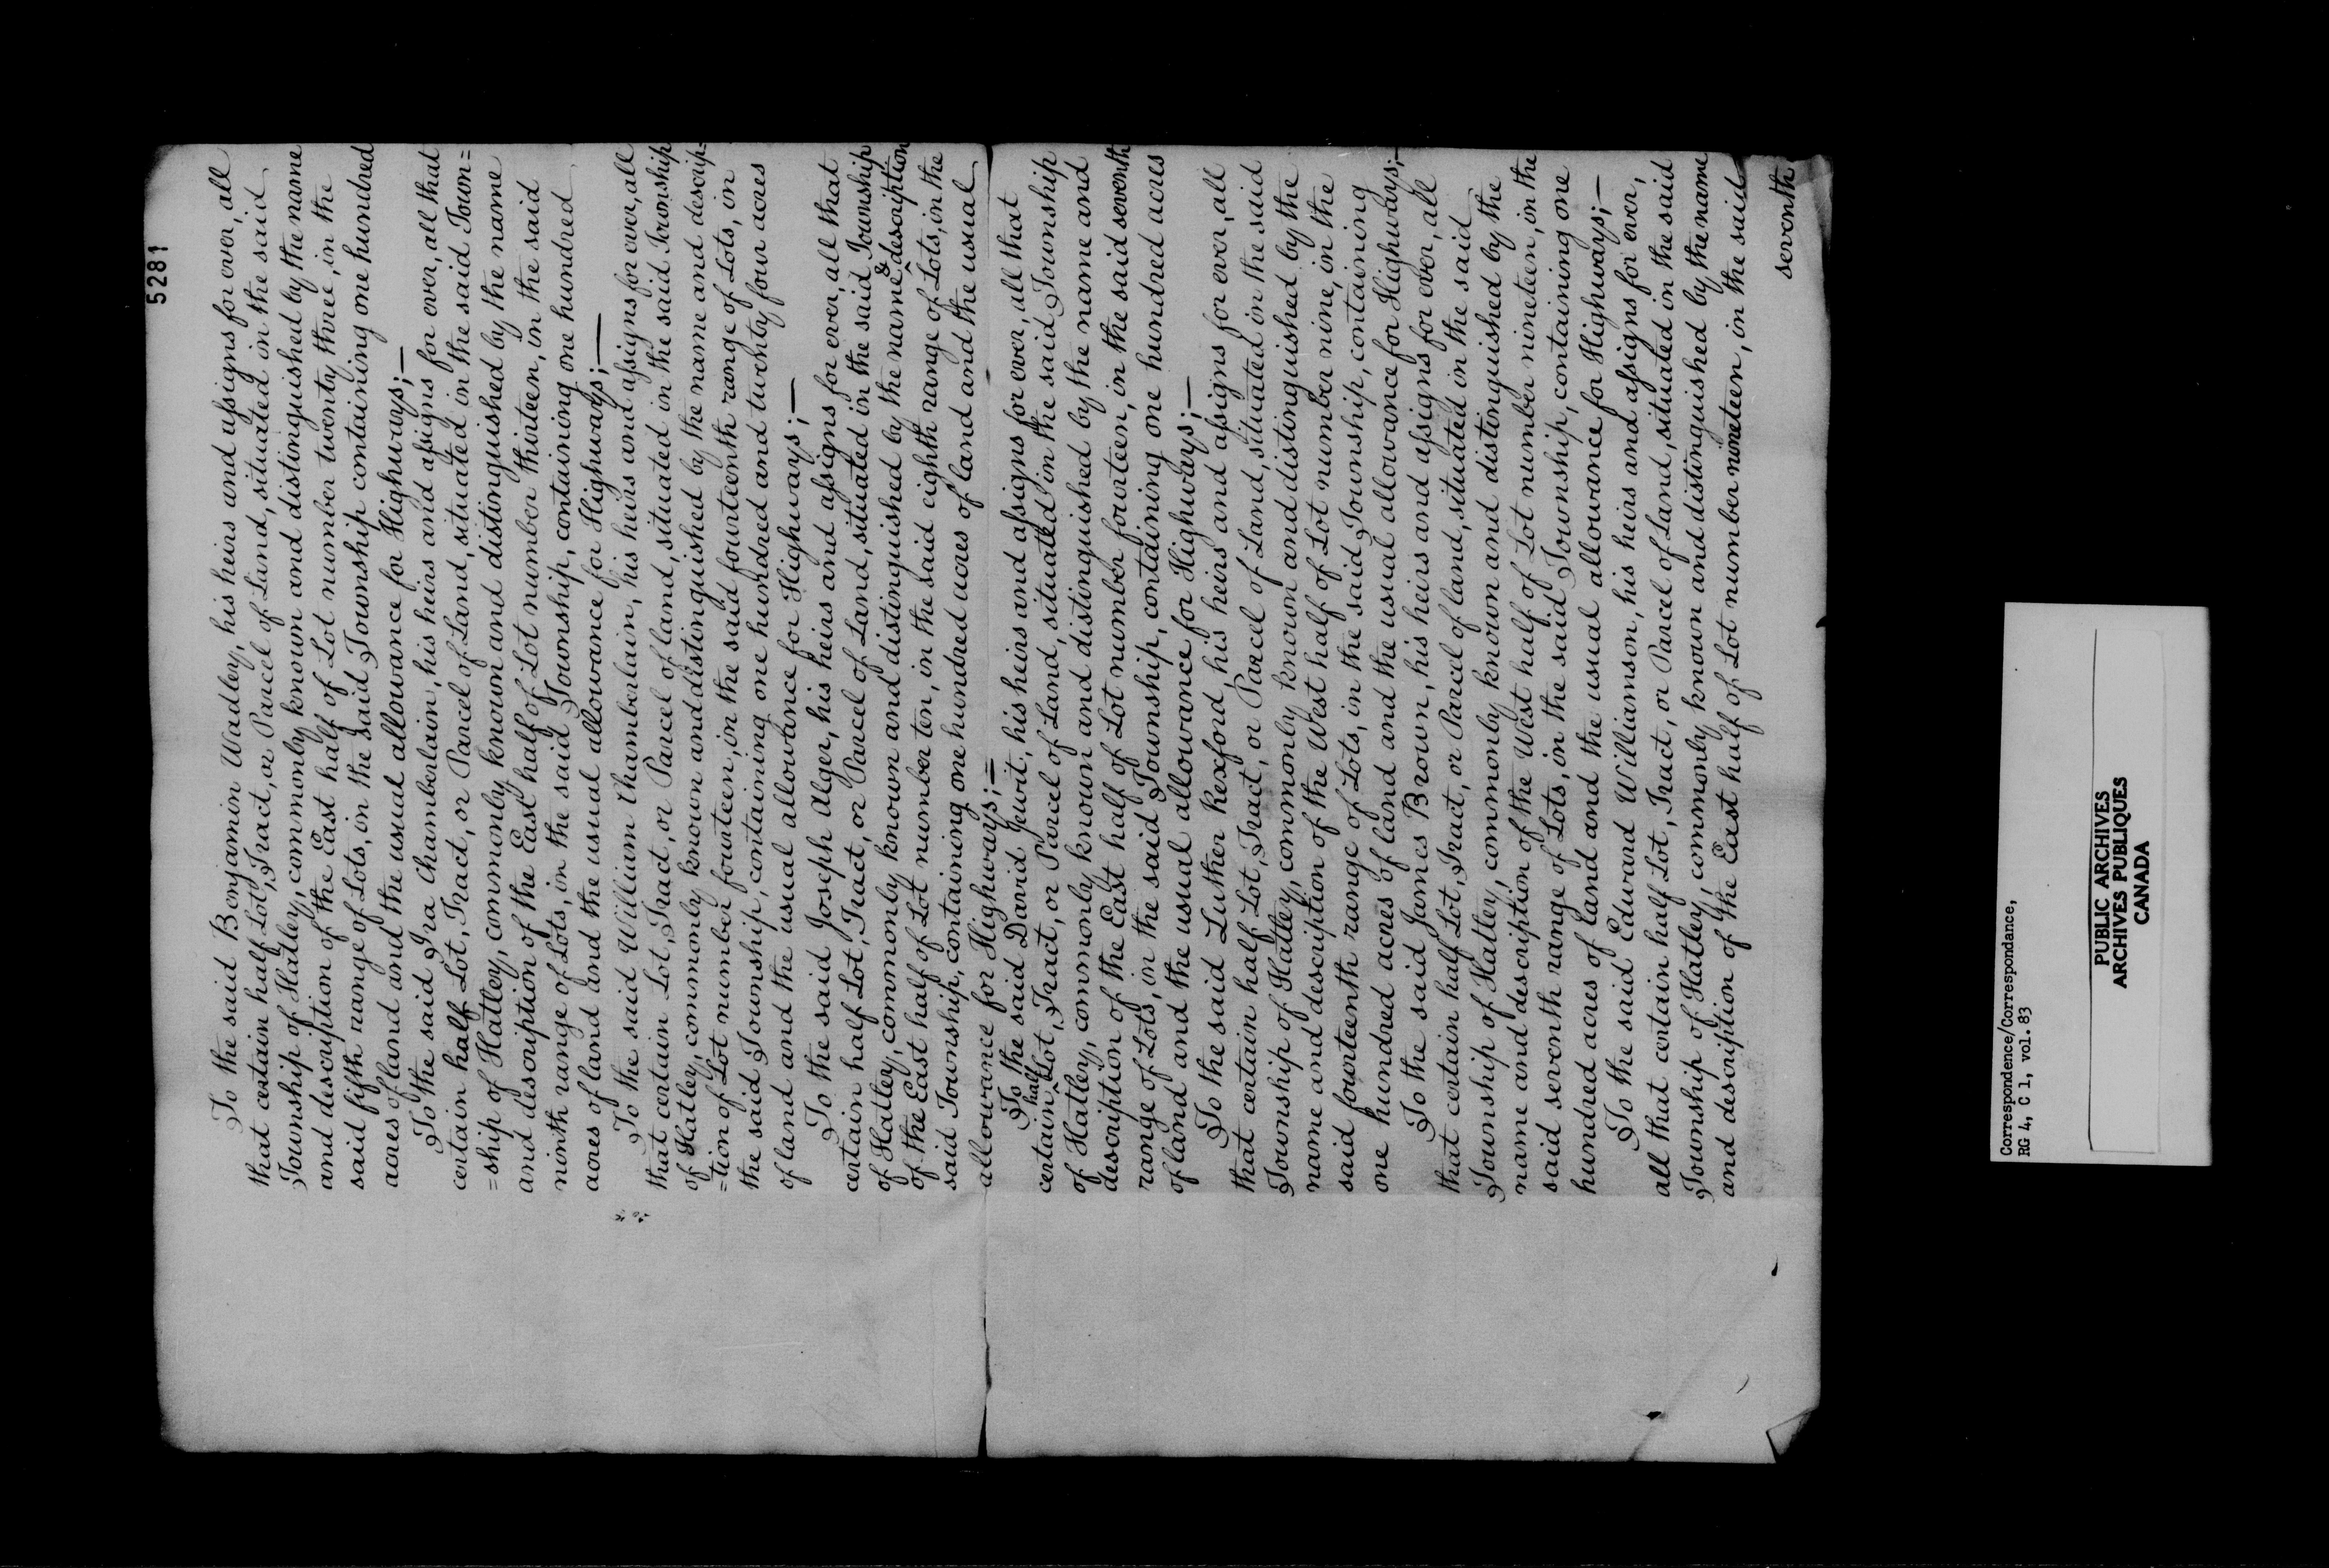 5281
To the said Benjamin Wadley, his heirs and assigns for ever, all
that certain half Lot, Tract, or Parcel of Land, situated in the said
Township of Hatley, commonly known and distinguished by the name
and description of the East half of Lot number twenty three, in the
said fifth range of Lots, in the said Township containing one hundred
acres of land and the usual allowance for Highways;—
To the said Ira Chamberlain, his heirs and assigns for ever, all that
certain half Lot, Tract, or Parcel of Land, situated in the said Town=
=ship of Hatley, commonly known and distinguished by the name
and description of the East half of Lot number thirteen, in the said
ninth range of Lots, in the said Township, containing one hundred
acres of land and the usual allowance for Highways;—
To the said William Chamberlain, his heirs and assigns for ever, all
that certain Lot, Tract, or Parcel of land, situated in the said Township
of Hatley, commonly known and distinguished by the name and descrip=
=tion of Lot number fourteen, in the said fourteenth range of Lots, in
the said Township, containing one hundred and twenty four acres
of land and the usual allowance for Highways;—
To the said Joseph Alger, his heirs and assigns for ever, all that
certain half Lot, Tract, or Parcel of Land, situated in the said Township
of Hatley, commonly known and distinguished by the name & description
of the East half of Lot number ten, in the said eighth range of Lots, in the
said Township, containing one hundred acres of land and the usual
allowance for Highways;=
To the said David Jewit, his heirs and assigns for ever, all that
certain half Lot, Tract, or Parcel of Land, situated in the said Township
of Hatley, commonly known and distinguished by the name and
description of the East half of Lot number fourteen, in the said seventh
range of Lots, in the said Township, containing one hundred acres
of land and the usual allowance for Highways;—
To the said Luther Rexford, his heirs and assigns for ever, all
that certain half Lot, Tract, or Parcel of Land, situated in the said
Township of Hatley, commonly known and distinguished by the
name and description of the West half of Lot number nine, in the
said fourteenth range of Lots, in the said Township, containing
one hundred acres of land and the usual allowance for Highways;—
To the said James Brown, his heirs and assigns for ever, all
that certain half Lot, Tract, or Parcel of land, situated in the said
Township of Hatley, commonly known and distinguished by the
name and description of the West half of Lot number nineteen, in the
said seventh range of Lots, in the said Township, containing one
hundred acres of land and the usual allowance for Highways;—
To the said Edward Williamson, his heirs and assigns for ever,
all that certain half Lot, Tract, or Parcel of Land, situated in the said
Township of Hatley, commonly known and distinguished by the name
and description of the East half of Lot number nineteen, in the said
seventh
Correspondence/Correspondance,
RG 4, C 1, vol. 83
PUBLIC ARCHIVES
ARCHIVES PUBLIQUES
CANADA